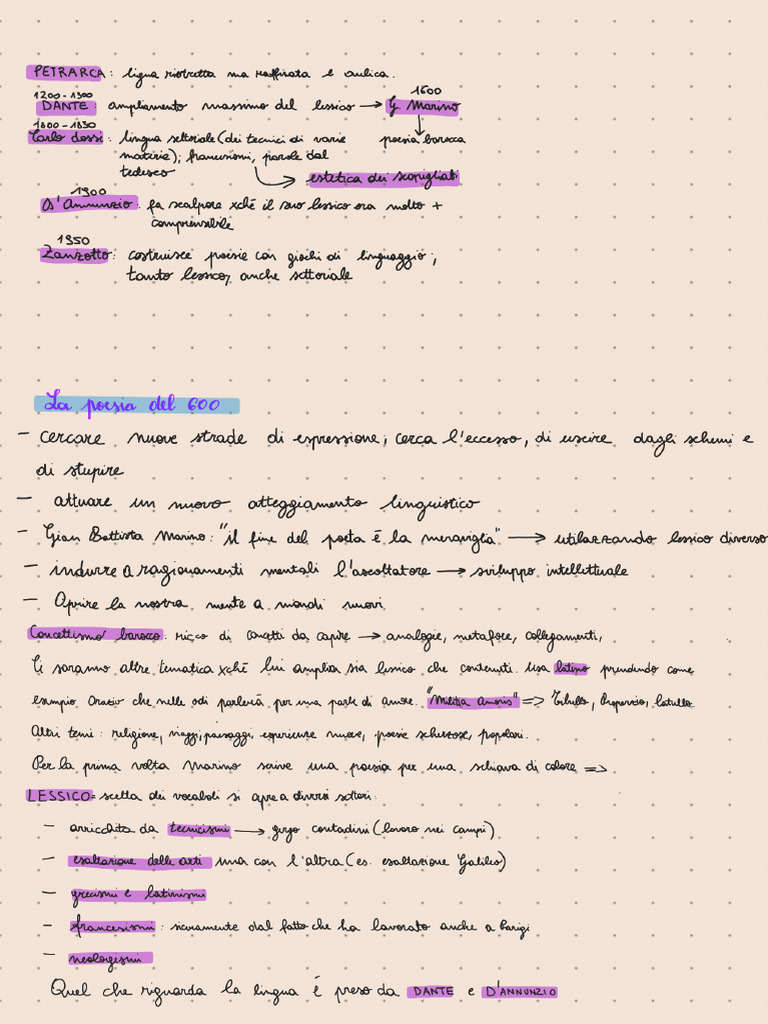 PETRARCA: ligua ristretta ma raffinata e aulica.
1200-1300
1600
DANTE: ampliamento massimo del lessico → G. Marino
1800-1830
Carlo dossi: lingua settoriale (dei tecnici di varie
poesia barocca
materie); francesismi, parole dal
tedesco
estetica dei scapigliati
1900
D'Annunzio: fa scalpore xché il suo lessico era molto +
comprensibile
1950
Zanzotto: costruisce poesie con giochi di linguaggio,
tanto lessico, anche settoriale
La poesia del 600
- cercare nuove strade di espressione; cerca l'eccesso, di uscire dagli schemi e
di stupire
- attuare un nuovo atteggiamento linguistico
- Gian Battista Marino: "il fine del poeta è la meraviglia" → utilizzando lessico diverso
- indurre a ragionamenti mentali l'ascoltatore → sviluppo intellettuale
- Aprire la nostra mente a mondi nuovi
Concettismo barocco: ricco di concetti da capire → analogie, metafore, collegamenti,
Ci saranno altre tematica xché lui amplia sia lessico che contenuti. Usa latino prendendo come
esempio Orazio che nelle odi parlerà per una parte di amore. "Militia Amoris" => Tibullo, Properzio, Catullo.
Altri temi: religione, viaggi, paesaggi, esperienze nuove, poesie scherzose, popolari.
Per la prima volta Marino scrive una poesia per una schiava di colore =>
LESSICO= scelta dei vocaboli si apre a diversi settori:
- arricchita da tecnicismi → gergo contadini (lavoro nei campi)
- esaltazione delle arti una con l'altra (es. esaltazione Galileo)
- grecismi e latinismi
- francesismi: sicuramente dal fatto che ha lavorato anche a Parigi
- neologismi
Quel che riguarda la lingua è preso da DANTE e D'ANNUNZIO